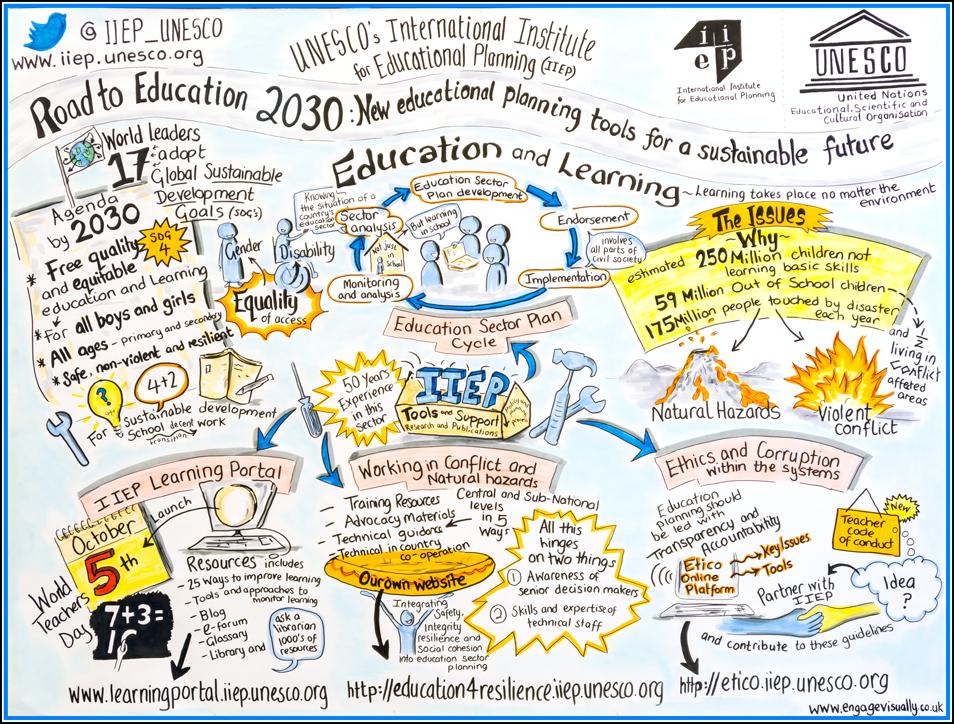 @ IIEP_UNESCO
www.iiep.unesco.org
UNESCO's International Institute
for Educational Planning (IIEP)
iiep
International Institute
for Educational Planning
UNESCO
United Nations
Educational, Scientific and
Cultural Organisation
Road to Education 2030: New educational planning tools for a sustainable future
World leaders
17 adopt
Global Sustainable
Development
Goals (SDG's)
Agenda
by 2030
SDG
4
* Free quality
and equitable
education and Learning
* For all boys and girls
* All ages - primary and secondary
* Safe, non-violent and resilient
?
4+2
For Sustainable development
School decent work
transition
Education and Learning
~Learning takes place no matter the
environment
Gender
Disability
Equality
of access
Knowing
the situation of a
country's
education
sector
Sector
analysis
Education Sector
Plan development
Endorsement
involves
all parts of
civil society
Implementation
Monitoring
and analysis
Not just
in
School
But learning
in school
Education Sector Plan
Cycle
The Issues
Why~
estimated 250 Million children not
learning basic skills
59 Million Out of School children
175 Million people touched by disaster
each year
and 1/2
living in
conflict
affected
areas
Natural Hazards
Violent
conflict
50 Years
Experience
in this
Sector
IIEP
Tools and Support
Research and Publications
IIEP Learning Portal
October
5th
Launch
World
Teachers
Day
7+3=
10
Resources includes
- 25 Ways to improve learning
- Tools and approaches to
monitor learning
- Blog
- e-forum
- Glossary
- Library and
ask a
librarian
1000's of
resources
www.learningportal.iiep.unesco.org
Working in Conflict and
Natural hazards
- Training Resources
- Advocacy Materials
- Technical guidance
- Technical in country
co-operation
Central and Sub-National
levels
in 5
ways
Our own website
Integrating
Safety,
Integrity
resilience and
Social cohesion
into education sector
planning
All this
hinges
on two things
1 Awareness of
senior decision makers
2 Skills and expertise of
technical staff
http://education4resilience.iiep.unesco.org
Ethics and Corruption
within the systems
Education
planning should
be led with
Transparency and
Accountability
Etico
Online
Platform
Key Issues
Tools
New
Teacher
code of
conduct
Idea
?
Partner with
IIEP
and contribute to these guidelines
http://etico.iiep.unesco.org
www.engagevisually.co.uk